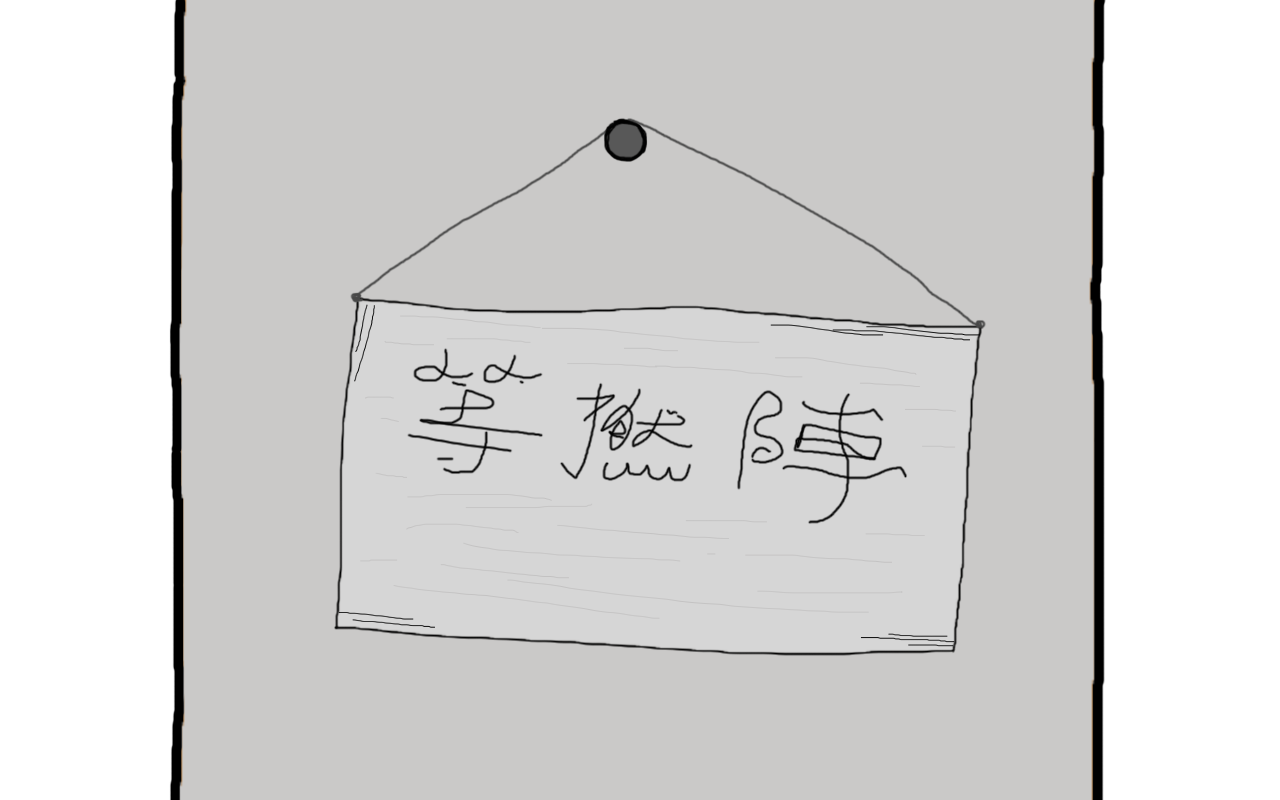 等撚陣